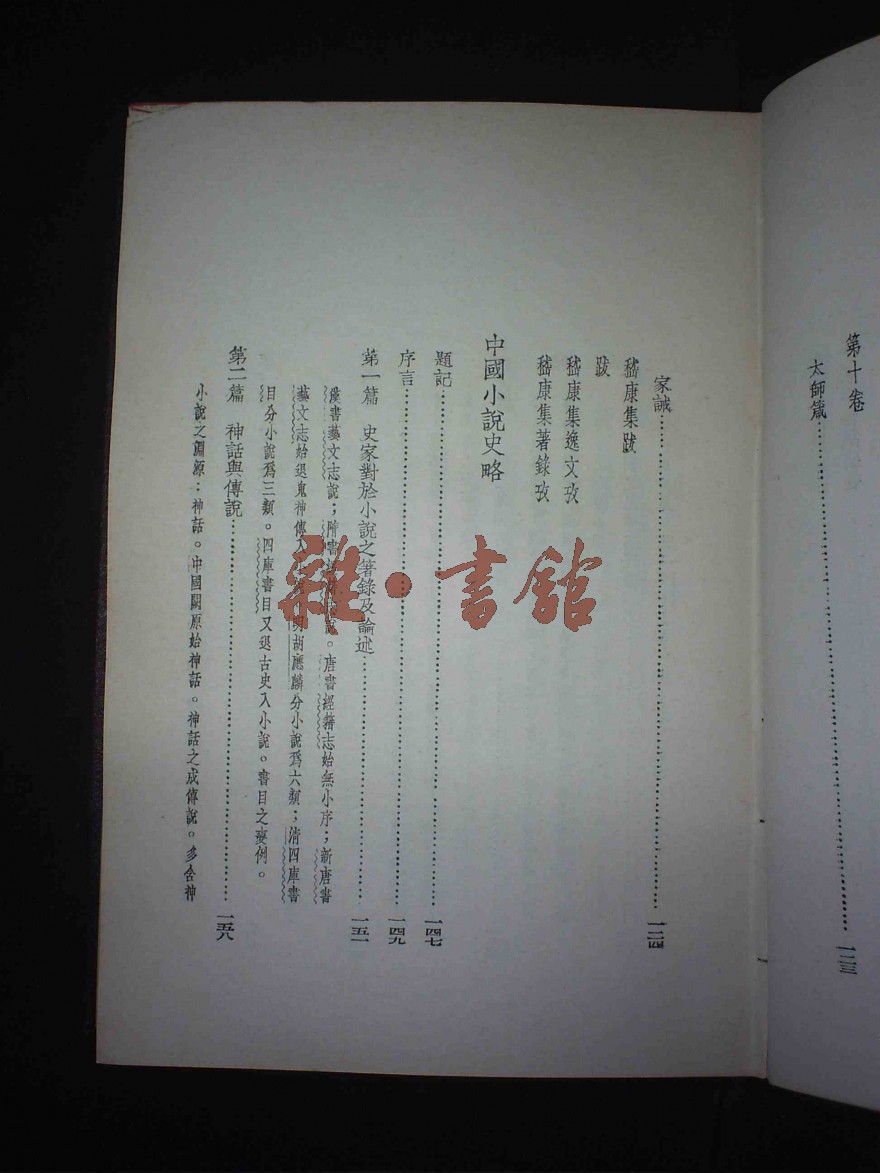 第十卷
太師箴……一二三
家誡……一二四
嵇康集跋
跋
嵇康集逸文攷
嵇康集著錄攷
中國小說史略
題記……一四七
序言……一四九
第一篇 史家對於小說之著錄及論述……一五一
漢書藝文志說；隋書 說。唐書經籍志始無小序；新唐書
藝文志始退鬼神傳入 明胡應麟分小說爲六類；清四庫書
目分小說爲三類。四庫書目又退古史入小說。書目之變例。
第二篇 神話與傳說……一五八
小說之淵源：神話。中國闕原始神話。神話之成傳說。多含神
雜·書館